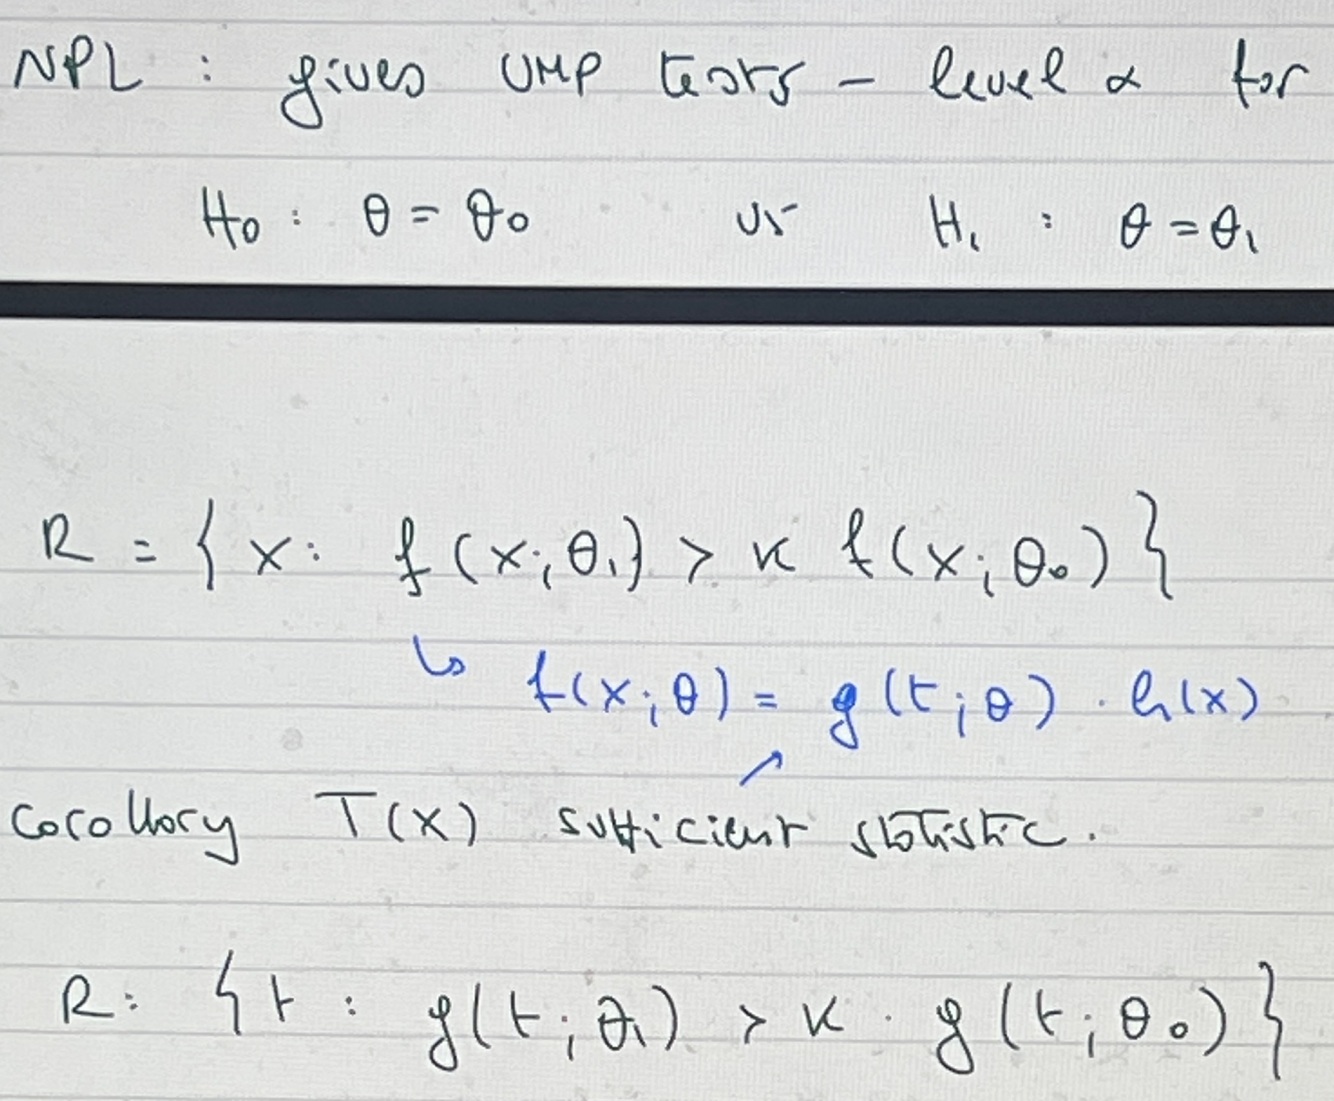 NPL : gives UMP tests - level α for
H₀ : θ = θ₀ vs H₁ : θ = θ₁
R = { x : f(x; θ₁) > k f(x; θ₀) }
↳ f(x; θ) = g(t; θ) · h(x)
Corollary T(X) sufficient statistic.
R : { t : g(t; θ₁) > k · g(t; θ₀) }